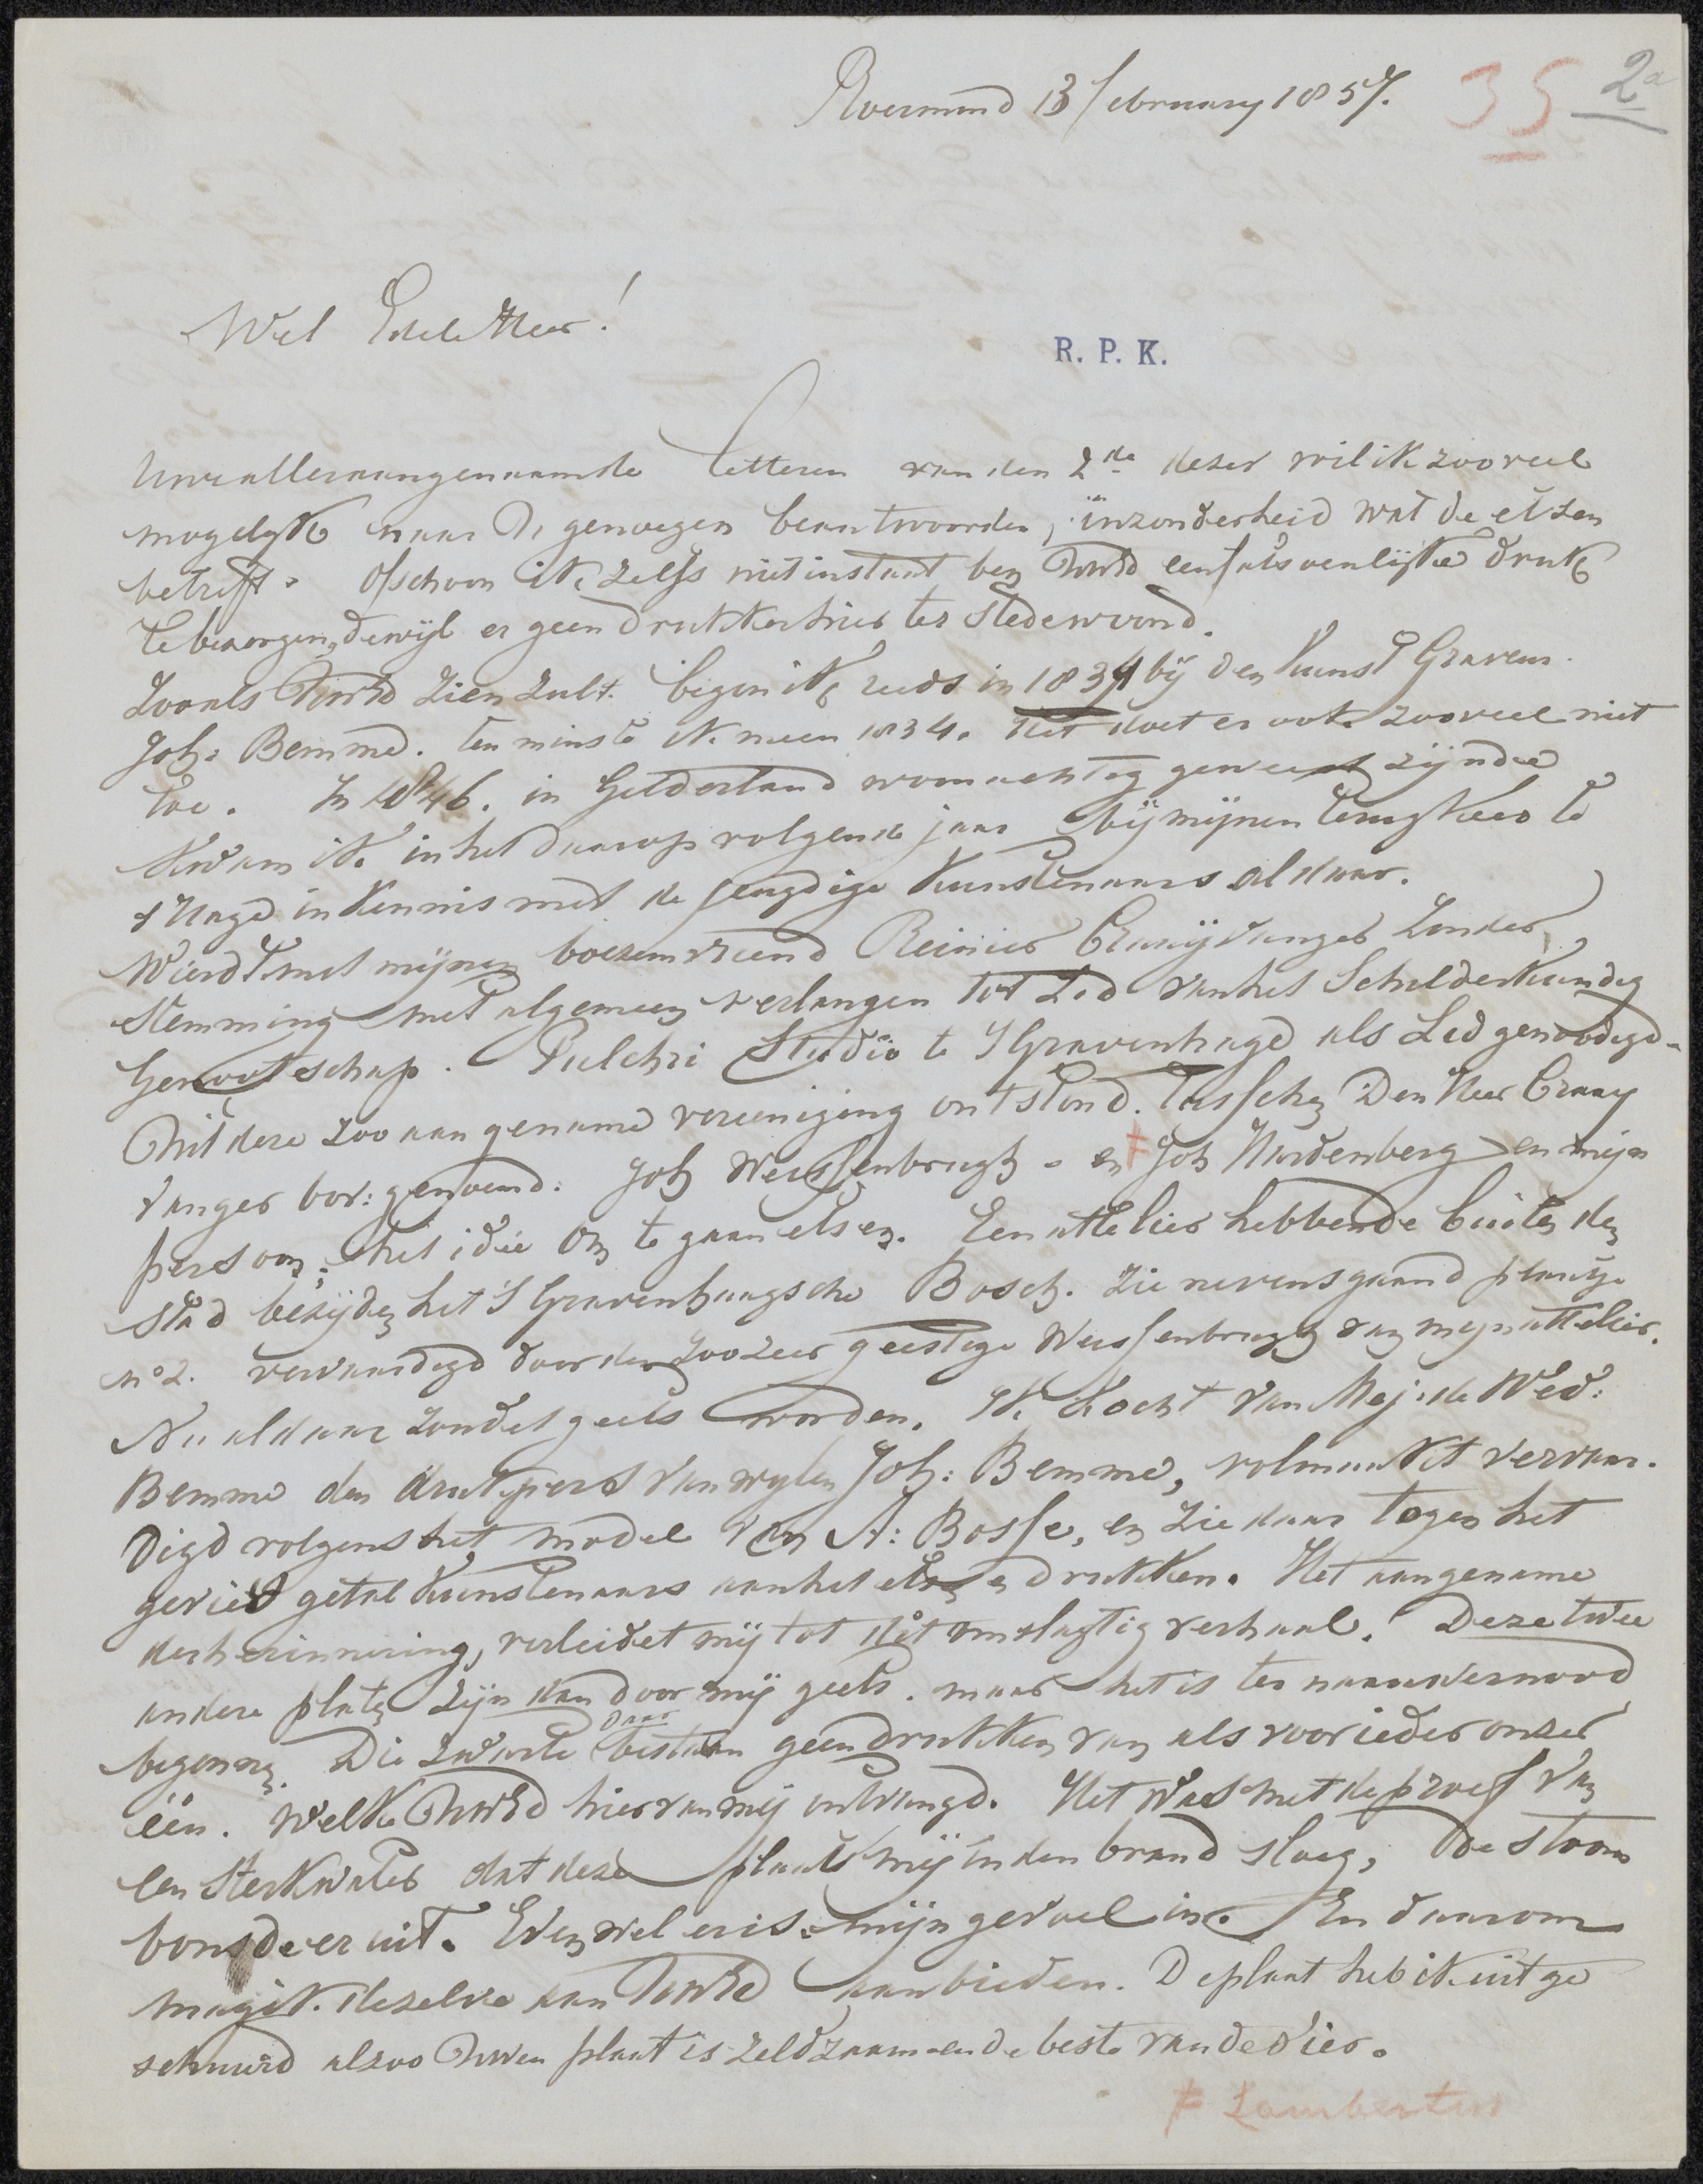 Roermond 13 february 1857.
35 2a
Wel Edele Heer!
R. P. K.
Uwe alleraangenaamste letteren van den 2de dezer wil ik zooveel
mogelyk naar Ds genoegen beantwoorden, inzonderheid wat de etsen
betreft. Ofschoon ik zelfs niet instaat ben UwEd een fatsoenlijke druk
te bezorgen, dewijl er geen drukker hier ter stede woond.
Zooals UwEd zien zult. begon ik reeds in 1834 bij den Kunst Graveur
Joh: Bemme. ten minste ik meen 1834. Het doet er ook zooveel niet
toe. In 1846. in Gelderland woonachtig geweest zijnde
kwam ik in het daarop volgende jaar bij mijnen terugkeer te
s Hage in kennis met de jeugdige kunstenaars aldaar.
Wierdt met mijnen boezemvriend Reinier Craeijvanger Zonder
stemming met algemeen verlangen tot Lid van het Schilderkundig
Genootschap. Pulchri Studio te SGravenhage als Lid genoodigd.
Uit deze zoo aangename vereeniging ontstond. tusschen Den Heer Craay
vanger bov: genoemd: Joh Weissenbrugh - en ‡ Joh Hardenberg en mijn
persoon; het idée om te gaan etsen. Een attelier hebbende buiten den
stad bezijden het 's Gravenhaagsche Bosch. Zie nevensgaand plaatje
no 2. vervaardigd door den zoozeer geestige Weissenbrugh van mijn attelier.
Nu aldaar zoudet geets worden. Ik kocht van Mej: de Wed:
Bemme den drukpers van wylen Joh: Bemme, volmaakt vervaar-
digd volgens het model van A: Bosse, en zie daar toges het
getal kunstenaars aan het etsen en drukken. Het aangename
der herinnering, verleidet mij tot dit omslagtig verhaal. Deze twee
andere platen zijn dan door mij geets. maar het is ter naauwernood
begonnen. Die zwarte daar bestaan geen drukken van als voor ieder onzer
één. Welke UwEd hier van mij ontvangd. Het was met de proef van
een sterkwater dat deze plaat mij in den brand sloeg, de stoom
bonsde er uit. Evenwel er is mijn gevoel in. En daarom
mag ik dezelve aan UwEd aanbieden. De plaat heb ik uitge
schuurd alzoo Uwen plaat is zeldzaam en de beste van de vier.
‡ Lambertus